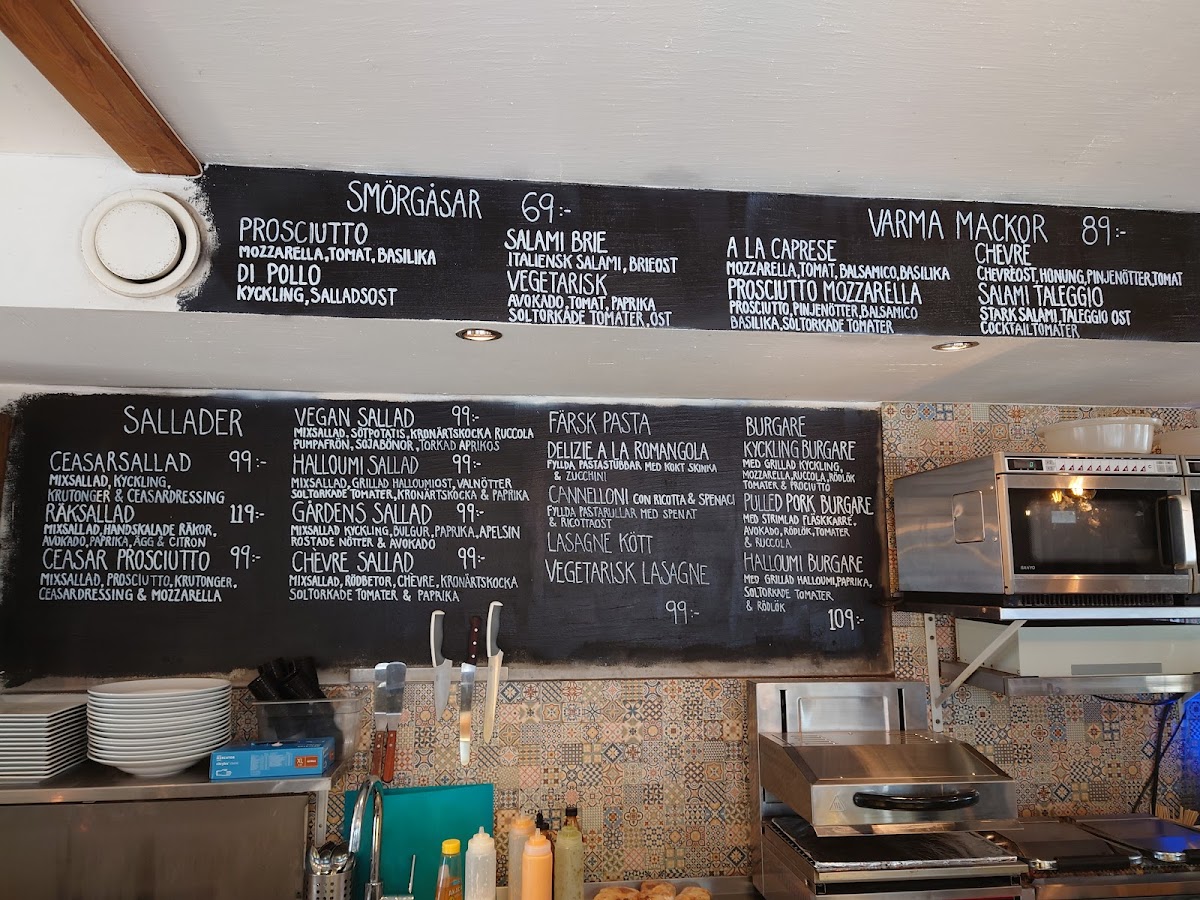 SMÖRGÅSAR 69:-
PROSCIUTTO
MOZZARELLA, TOMAT, BASILIKA
DI POLLO
KYCKLING, SALLADSOST
SALAMI BRIE
ITALIENSK SALAMI, BRIEOST
VEGETARISK
AVOKADO, TOMAT, PAPRIKA
SOLTORKADE TOMATER, OST
VARMA MACKOR 89:-
A LA CAPRESE
MOZZARELLA, TOMAT, BALSAMICO, BASILIKA
PROSCIUTTO MOZZARELLA
PROSCIUTTO, PINJENÖTTER, BALSAMICO
BASILIKA, SOLTORKADE TOMATER
CHEVRE
CHEVREOST, HONUNG, PINJENÖTTER, TOMAT
SALAMI TALEGGIO
STARK SALAMI, TALEGGIO OST
COCKTAILTOMATER
SALLADER
CEASARSALLAD 99:-
MIXSALLAD, KYCKLING,
KRUTONGER & CEASARDRESSING
RÄKSALLAD 119:-
MIXSALLAD, HANDSKALADE RÄKOR,
AVOKADO, PAPRIKA, ÄGG & CITRON
CEASAR PROSCIUTTO 99:-
MIXSALLAD, PROSCIUTTO, KRUTONGER,
CEASARDRESSING & MOZZARELLA
VEGAN SALLAD 99:-
MIXSALLAD, SÖTPOTATIS, KRONÄRTSKOCKA RUCCOLA
PUMPAFRÖN, SOJABÖNOR, TORKAD APRIKOS
HALLOUMI SALLAD 99:-
MIXSALLAD, GRILLAD HALLOUMIOST, VALNÖTTER
SOLTORKADE TOMATER, KRONÄRTSKOCKA & PAPRIKA
GÅRDENS SALLAD 99:-
MIXSALLAD KYCKLING, BULGUR, PAPRIKA, APELSIN
ROSTADE NÖTTER & AVOKADO
CHÈVRE SALLAD 99:-
MIXSALLAD, RÖDBETOR, CHÈVRE, KRONÄRTSKOCKA
SOLTORKADE TOMATER & PAPRIKA
FÄRSK PASTA
DELIZIE A LA ROMANGOLA
FYLLDA PASTASTUBBAR MED KOKT SKINKA
& ZUCCHINI
CANNELLONI CON RICOTTA & SPENACI
FYLLDA PASTARULLAR MED SPENAT
& RICOTTAOST
LASAGNE KÖTT
VEGETARISK LASAGNE
99:-
BURGARE
KYCKLING BURGARE
MED GRILLAD KYCKLING,
MOZZARELLA, RUCCOLA, RÖDLÖK
TOMATER & PROCIUTTO
PULLED PORK BURGARE
MED STRIMLAD FLÄSKKARRE,
AVOKADO, RÖDLÖK, TOMATER
& RUCCOLA
HALLOUMI BURGARE
MED GRILLAD HALLOUMI, PAPRIKA,
SOLTORKADE TOMATER
& RÖDLÖK
109:-
SANYO
XL